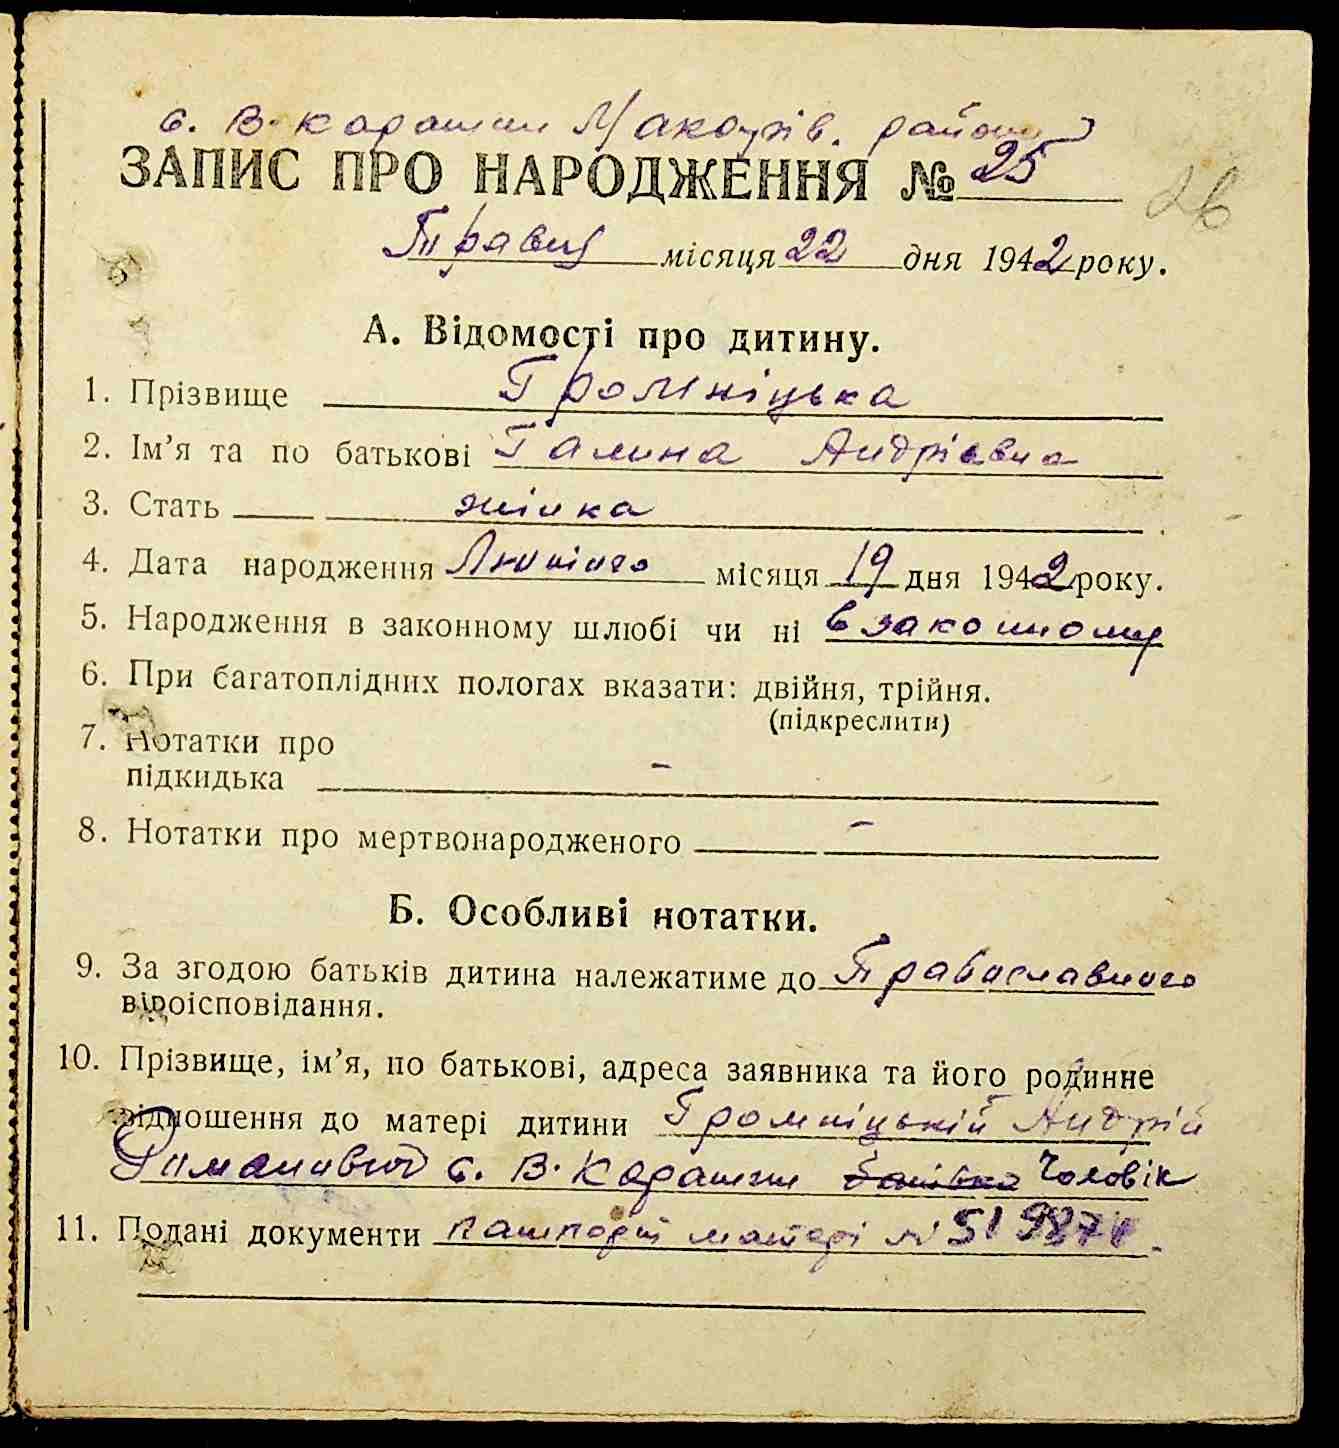 с. В. Карашин Макарів. району
ЗАПИС ПРО НАРОДЖЕННЯ № 25
26
Травня місяця 22 дня 1942 року.
А. Відомості про дитину.
1. Прізвище Громніцька
2. Ім’я та по батькові Галина Андрієвна
3. Стать жінка
4. Дата народження Лютого місяця 19 дня 1942 року.
5. Народження в законному шлюбі чи ні в законному
6. При багатоплідних пологах вказати: двійня, трійня.
(підкреслити)
7. Нотатки про
підкидька –
8. Нотатки про мертвонародженого –
Б. Особливі нотатки.
9. За згодою батьків дитина належатиме до Православного
віроісповідання.
10. Прізвище, ім’я, по батькові, адреса заявника та його родинне
відношення до матері дитини Громніцький Андрій
с. В. Карашин Чоловік
11. Подані документи пашпорт матері №